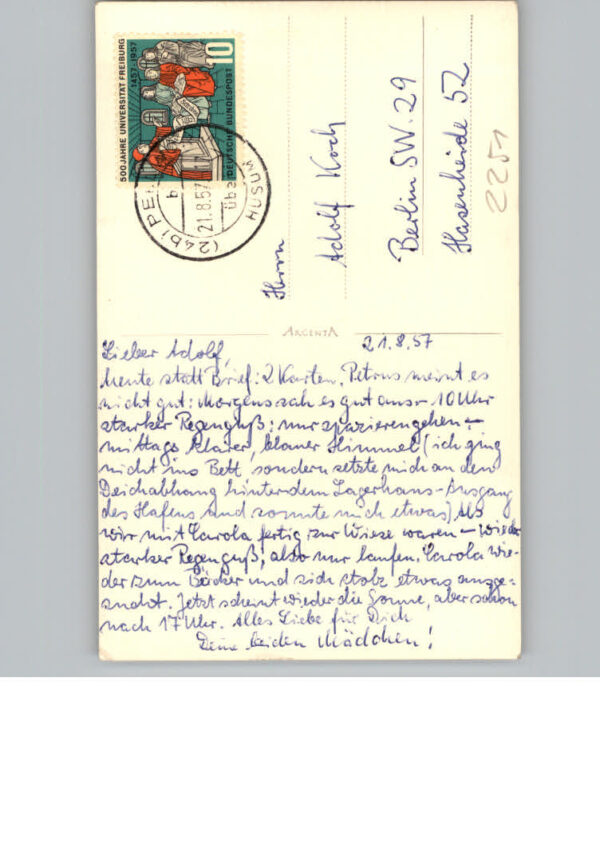 500 JAHRE UNIVERSITÄT FREIBURG
1457-1957
10
DEUTSCHE BUNDESPOST
(24b) PE
b
21.8.57
über HUSUM
Herrn
Adolf Koch
Berlin SW. 29
Hasenheide 52
2251
ARGENTA
21.8.57
Lieber Adolf,
heute statt Brief: 2 Karten. Petrus meint es
nicht gut: Morgens sah es gut aus - 10 Uhr
starker Regenguß; nur spazierengehen -
mittags klarer, blauer Himmel (ich ging
nicht ins Bett sondern setzte mich an den
Deichabhang hinter dem Lagerhaus-Ausgang
des Hafens und sonnte mich etwas) Als
wir mit Carola fertig zur Wiese waren - wieder
starker Regenguß, also nur laufen. Carola wie-
der zum Bäcker und sich stolz etwas ausge-
sucht. Jetzt scheint wieder die Sonne, aber schon
nach 17 Uhr. Alles Liebe für Dich
Deine beiden Mädchen!